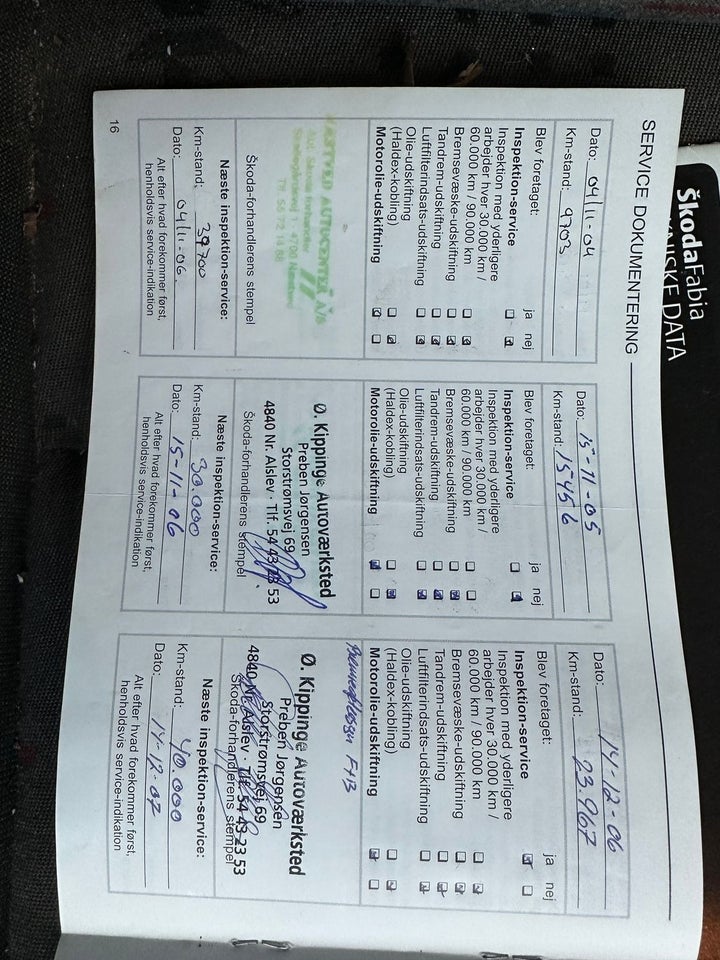 ŠkodaFabia
DANSKE DATA
SERVICE DOKUMENTERING
Dato: 04/11-04
Km-stand: 9703
Blev foretaget: ja nej
Inspektion-service
Inspektion med yderligere
arbejder hver 30.000 km /
60.000 km / 90.000 km
Bremsevæske-udskiftning
Tandrem-udskiftning
Luftfilterindsats-udskiftning
Olie-udskiftning
(Haldex-kobling)
Motorolie-udskiftning
NÆSTVED AUTOCENTER A/S
Aut. Skoda forhandler
4700 Næstved
Tlf. 55 72 14 88
Skoda-forhandlerens stempel
Næste inspektion-service:
Km-stand: 39700
Dato: 04/11-06
Alt efter hvad forekommer først,
henholdsvis service-indikation
16
Dato: 15-11-05
Km-stand: 15456
Blev foretaget: ja nej
Inspektion-service
Inspektion med yderligere
arbejder hver 30.000 km /
60.000 km / 90.000 km
Bremsevæske-udskiftning
Tandrem-udskiftning
Luftfilterindsats-udskiftning
Olie-udskiftning
(Haldex-kobling)
Motorolie-udskiftning
Ø. Kippinge Autoværksted
Preben Jørgensen
Storstrømsvej 69
4840 Nr. Alslev · Tlf. 54 43 23 53
Skoda-forhandlerens stempel
Næste inspektion-service:
Km-stand: 30.000
Dato: 15-11-06
Alt efter hvad forekommer først,
henholdsvis service-indikation
Dato: 14-12-06
Km-stand: 23.967
Blev foretaget: ja nej
Inspektion-service
Inspektion med yderligere
arbejder hver 30.000 km /
60.000 km / 90.000 km
Bremsevæske-udskiftning
Tandrem-udskiftning
Luftfilterindsats-udskiftning
Olie-udskiftning
(Haldex-kobling)
Motorolie-udskiftning
F+B
Ø. Kippinge Autoværksted
Preben Jørgensen
Storstrømsvej 69
4840 Nr. Alslev · Tlf. 54 43 23 53
Skoda-forhandlerens stempel
Næste inspektion-service:
Km-stand: 40.000
Dato: 14-12-07
Alt efter hvad forekommer først,
henholdsvis service-indikation